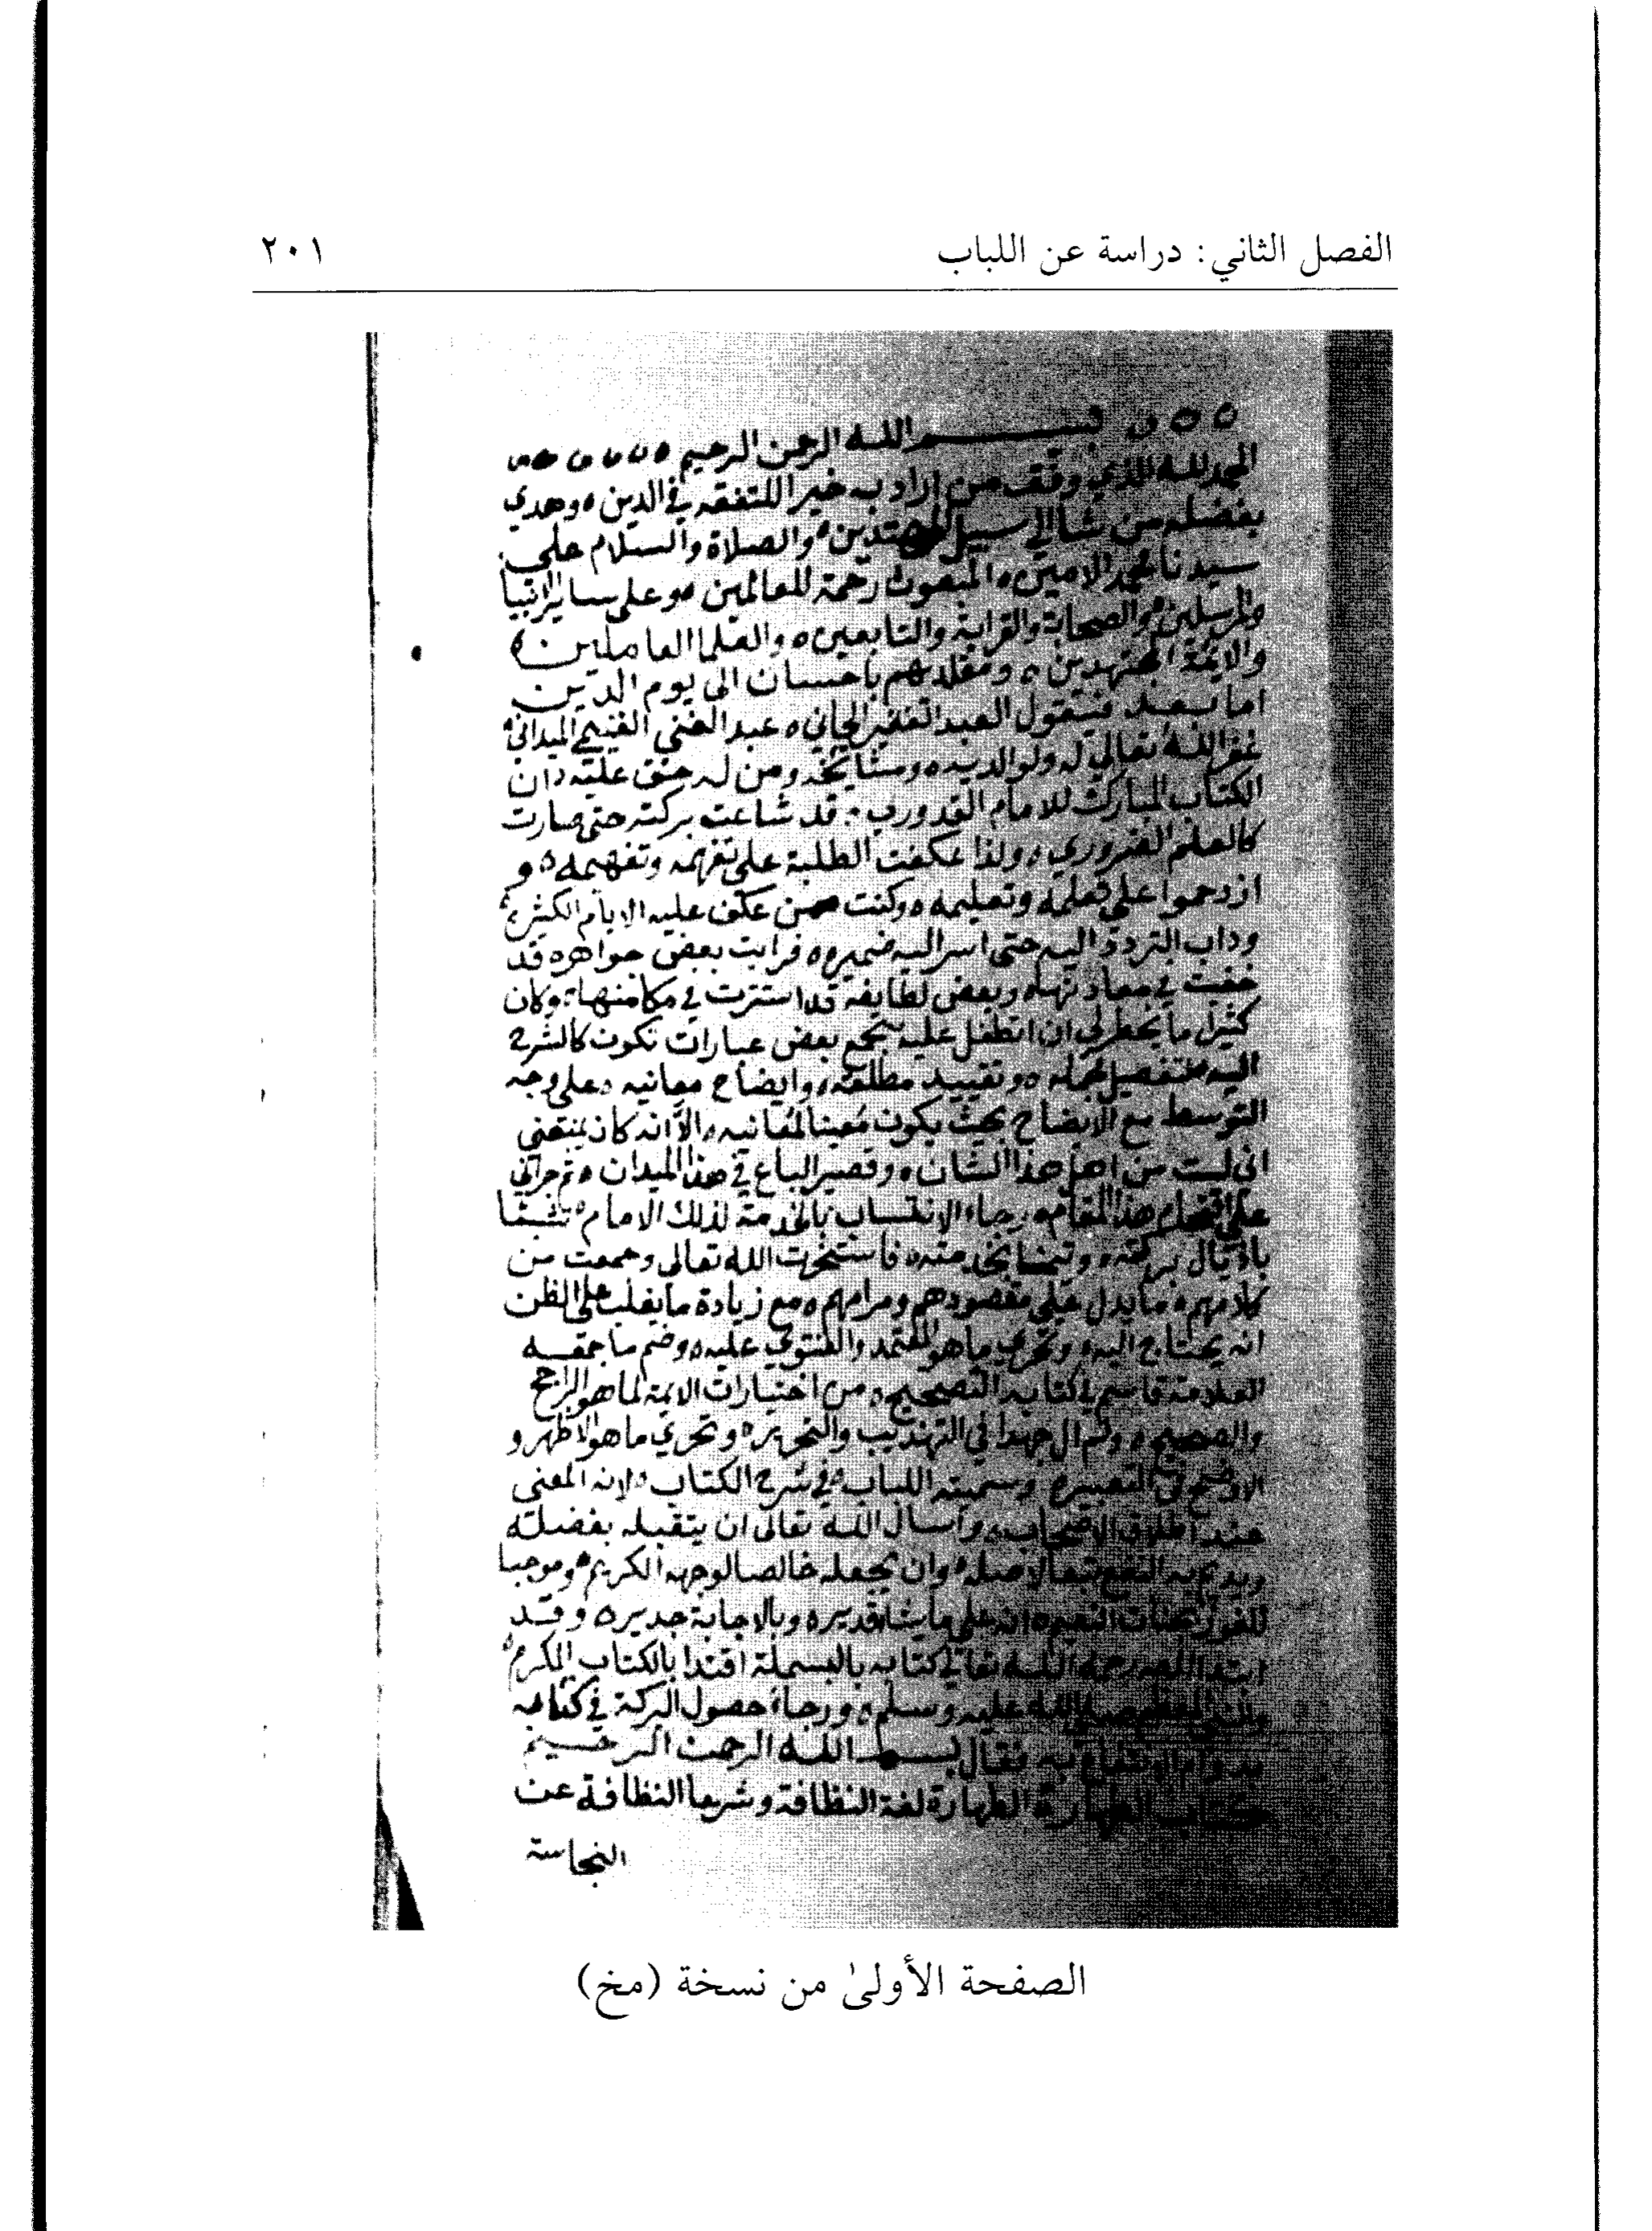 الفصل الثاني: دراسة عن اللباب ٢٠١
بسم الله الرحمن الرحيم
الحمد لله الذي وفق من اراد به خيرا للتفقه في الدين وهدي
بفضله من شا الي سبيل المهتدين والصلاة والسلام علي
سيدنا محمد الامين المبعوث رحمة للعالمين وعلي ساير الانبيا
والمرسلين والصحابة والقرابة والتابعين والعلما العاملين
والايمة المجتهدين ومقلديهم باحسان الى يوم الدين
اما بعد فيقول العبد الفقير الجاني عبد الغني الغنيمي الميداني
غفر الله تعالي له ولوالديه ومشايخه ومن له حق عليه ان
الكتاب المبارك للامام القدوري قد شاعت بركته حتي صارت
كالعلم الضروري ولذا عكفت الطلبة علي تفهمه وتفهيمه و
ازدحموا علي تعلمه وتعليمه وكنت ممن عكف عليه الايام الكثيرة
وداب التردد اليه حتى اسر اليه ضميره فرايت بعض جواهره قد
خفيت في معادنها وبعض لطايفه قد استترت في مكامنها وكان
كثيرا ما يخطر لي ان اتطفل عليه بجمع بعض عبارات تكون كالشرح
اليه لتفصيل مجمله وتقييد مطلقه وايضاح معانيه علي وجه
التوسط مع الايضاح بحيث يكون معينا لمعانيه الا انه كان يمنعني
اني لست من اهل هذا الشان وقصير الباع في هذا الميدان ثم جراني
علي هذا المقام رجاء الانتساب بالخدمة لذلك الامام تشبثا
باذيال بركته وتيمنا بخدمته فاستخرت الله تعالى وجمعت من
كلامهم ما يدل علي مقصودهم ومرامهم مع زيادة ما يغلب علي الظن
انه يحتاج اليه وتحري ما هو المعتمد والفتوي عليه وضم ما حققه
العلامة قاسم في كتابه التصحيح من اختيارات الايمة لما هو الراجح
والصحيح ولم ال جهدا في التهذيب والتحرير وتحري ما هو الاظهر و
الاوضح في التعبير وسميته اللباب في شرح الكتاب لانه المعني
عند اطلاق الاصحاب واسال الله تعالى ان يتقبله بفضله
ويديم به النفع تبعا لاصله وان يجعله خالصا لوجهه الكريم وموجبا
للفوز بجنات النعيم انه علي ما يشا قدير وبالاجابة جدير وقد
ابتدا المص رحمه الله تعا كتابه بالبسملة اقتدا بالكتاب المكرم
والنبي المعظم صلي الله عليه وسلم ورجاء حصول البركة في كتابه
به فقال بسم الله الرحمن الرحيم
كتاب الطهارة الطهارة لغة النظافة وشرعا النظافة عن
النجاسة
الصفحة الأولىٰ من نسخة (مخ)